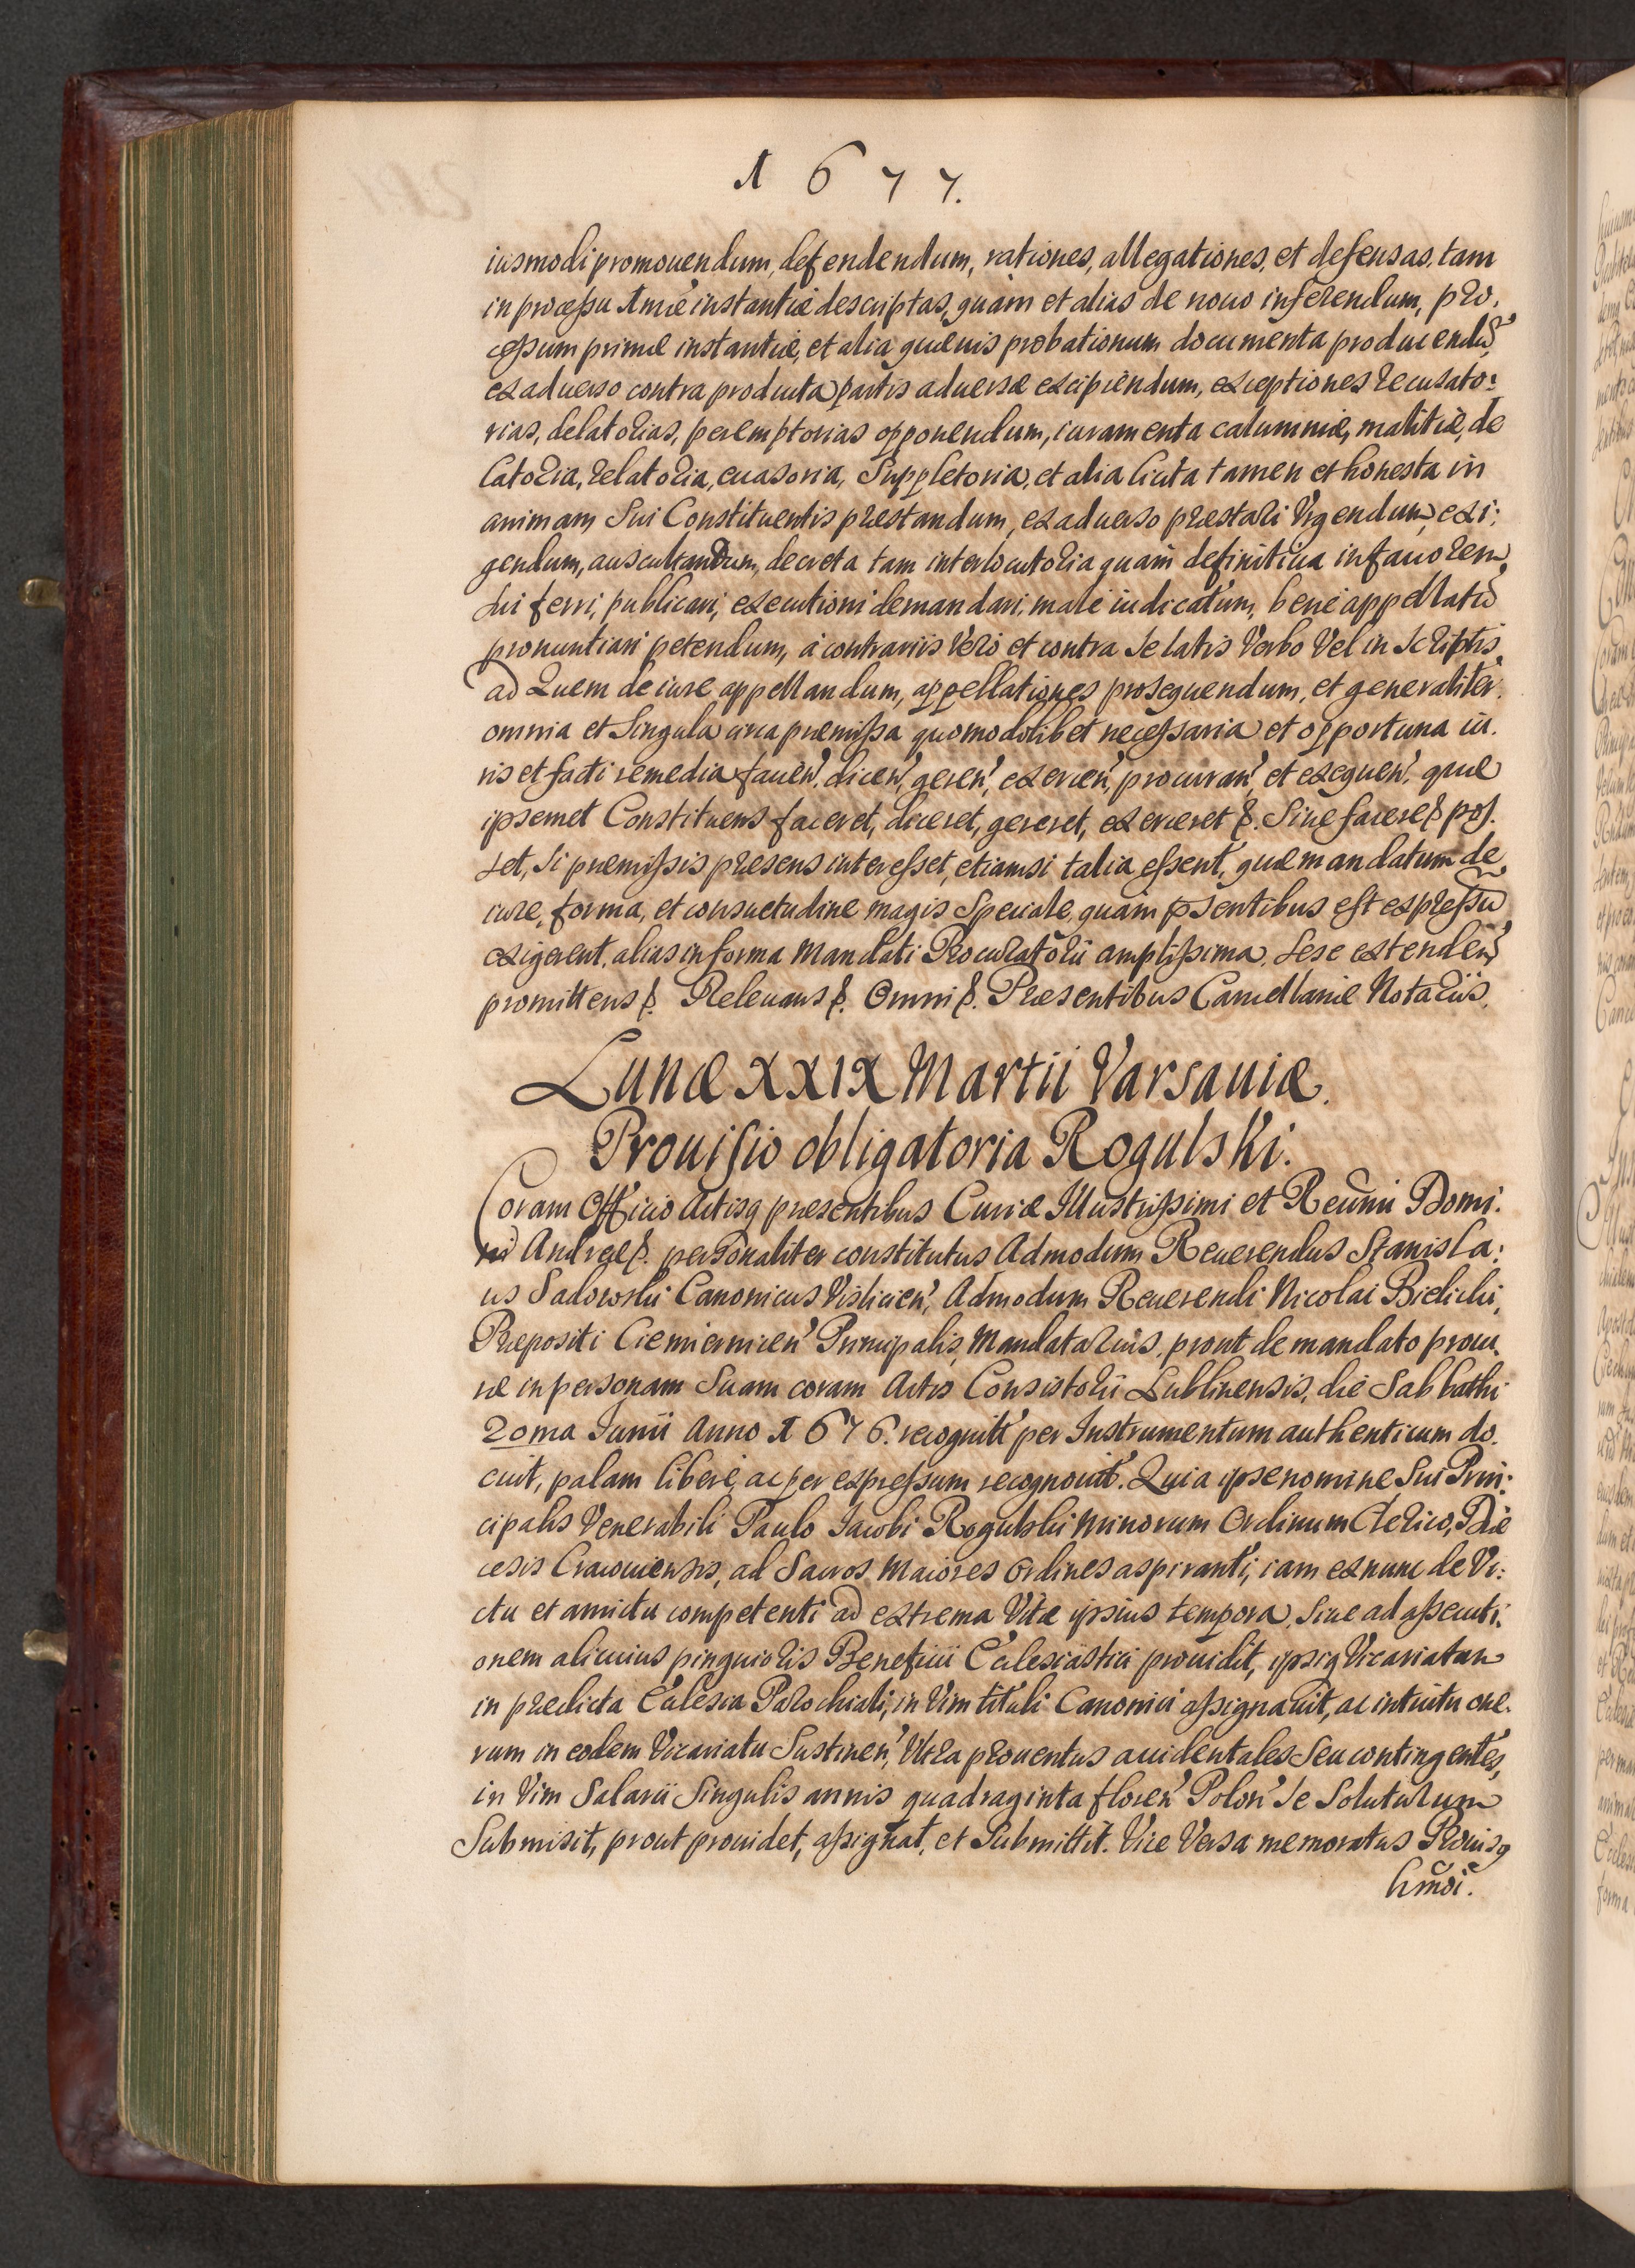 1677.
iusmodi promouendum, defendendum, rationes, allegationes, et defensas, tam
in processu 1mæ instantiæ descriptas, quàm et alias de nouo inferendum, pro,
cessum primæ instantiæ, et alia quæuis probationum documenta producendũ,
ex aduerso contra producta partis aduersæ excipiendum, exceptiones recusato:
rias, delatorias, peremptorias opponendum, iuramenta calumniæ, malitiæ, de
latoria, relatoria, euasoria, Suppletoria, et alia licita tamen et honesta in
animam Sui Constituentis præstandum, ex aduerso præstari Vrgendum, exi:
gendum, auscultandum, decreta tam interlocutoria quam definitiua in fauorem
Sui ferri, publicari, executioni demandari, malè iudicatum, benè appellatũ
pronuntiari petendum, à contrariis Verò et contra Se latis Verbo Vel in Scriptis,
ad Quem de iure appellandum, appellationes prosequendum, et generaliter,
omnia et Singula circa præmissa quomodolibet necessaria et opportuna iu.
ris et facti remedia facien', dicen', geren', exercen', procuran', et exequen', quæ
ipsemet Constituens faceret, diceret, gereret, exerceret &. Siue facere & pos.
set, Si præmissis præsens interesset, etiamsi talia essent, quæ mandatum de
iure, forma, et consuetudine magis Speciale, quàm p̃sentibus est expressũ
exigerent, alias in forma Mandati Procuratorii amplissima, Sese extenden'
promittens &. Releuans &. Omni &. Præsentibus Cancellariæ Notariis.
Lunæ XXIX Martii Varsauiæ.
Prouisio obligatoria Rogulski.
Coram Officio Actisq præsentibus Curiæ Illustrissimi et Reũmi Domi.
ni Andreæ &. personaliter constitutus Admodum Reuerendus Stanisla:
us Sadowski Canonicus Vislicien', Admodum Reuerendi Nicolai Bielicki,
Præpositi Ciemiernicen' Principalis, Mandatarius, prout de mandato procu,
ræ in personam Suam coram Actis Consistorii Lublinensis, die Sabbathi
20ma Iunii Anno 1676. recognitt' per Instrumentum authenticum do.
cuit, palam liberè, ac per expressum recognouit. Quia ipse nomine Sui Prin:
cipalis Venerabili Paulo Iacobi Rogulski Minorum Ordinum Clerico, Diæ
cesis Cracouiensis, ad Sacros Maiores Ordines aspiranti, iam ex nunc de Vi:
ctu et amictu competenti ad extrema Vitæ ipsius tempora, Siue ad assecuti:
onem alicuius pinguioris Beneficii Ecclesiastici prouidit, ipsiq Vicariatum
in prædicta Ecclesia Parochiali, in Vim tituli Canonici assignauit, ac intuitu one.
rum in eodem Vicariatu Sustinen', Vltra prouentus accidentales Seu contingentes,
in Vim Salarii Singulis annis quadraginta floren' Polon' Se Soluturum
Submisit, prout prouidet, assignat, et Submittit. Vice Versa memoratus Prouisq
hm̃oi.